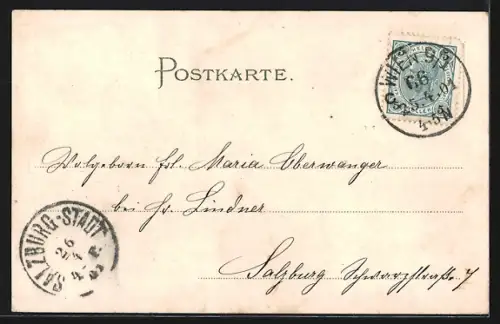 POSTKARTE.
WIEN 9/3
Wolgeborn Frl. Maria Oberwanger
bei Hr. Lindner
Salzburg Schwarzstraße 7
SALZBURG-STADT